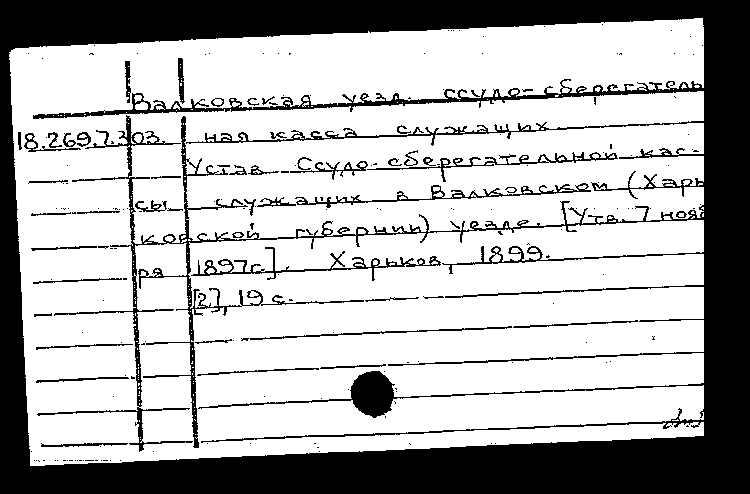 Валковская уезд. ссудо-сберегатель
18.269.7.303. ная касса служащих.
Устав Ссудо-сберегательной кас-
сы служащих в Валковском (Харь
ковской губернии) уезде. [Утв. 7 нояб
ря 1897г.]. Харьков, 1899.
[2], 19 с.